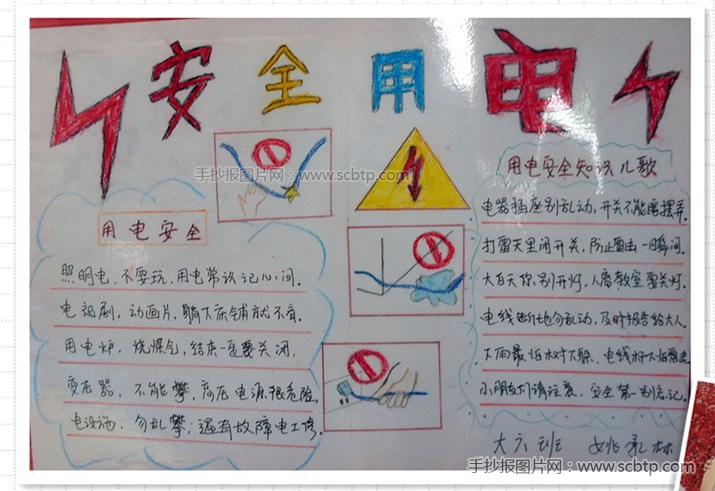 安全用电
手抄报图片网：www.scbtp.com
用电安全
照明电，不要玩，用电常识记心间。
电视剧，动画片，躺下床铺就不看。
用电炉，烧煤气，结束一定要关闭。
变压器，不能攀，高压电源很危险。
电设施，勿乱攀，遇有故障电工修。
用电安全知识儿歌
电器插座别乱动，开关不能随摆弄。
打雷天里闭开关，防止雷击一瞬间。
大白天你别开灯，人离教室要关灯。
电线断地勿乱动，及时报告给大人。
大雨最怕树下躲，电线杆
小朋友们请注意，安全第一别忘记。
大六班
手抄报图片网：www.scbtp.com